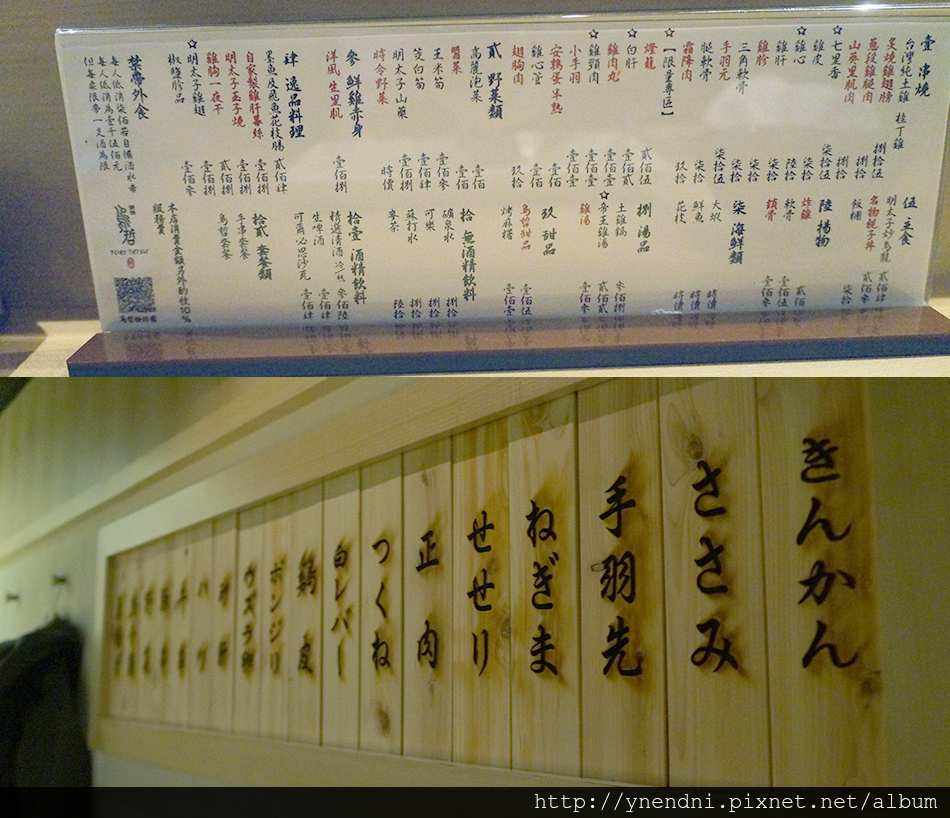 壹 串燒
台灣純土雞 桂丁雞
炙燒雞翅膀 捌拾伍
蔥段雞腿肉 捌拾
山葵里肌肉 捌拾
☆
七里香 柒拾伍
雞皮 柒拾
☆
雞心 陸拾
雞肝 柒拾
雞胗 柒拾
三角軟骨 柒拾
手羽元 柒拾伍
腿軟骨 柒拾
霜降肉 玖拾
☆
【限量專區】
燈籠 貳佰伍
☆
白肝 壹佰貳
雞肉丸 壹佰
☆
雞頸肉 壹佰壹
小手羽 壹佰壹
安格鵪蛋半熟 壹佰
雞心管 壹佰
翅胸肉 玖拾
貳 野菜類
高麗泡菜 壹佰
醬菜 壹佰
玉米筍 壹佰參
筊白筍 壹佰肆
明太子山藥 壹佰捌
時令野菜 時價
參 鮮雞赤身
洋風生里肌 壹佰捌
肆 逸品料理
墨魚及飛魚花枝腸 貳佰肆
自家製雞肝慕絲 壹佰捌
明太子玉子燒 壹佰捌
雞胸一夜干 貳佰捌
☆
明太子雞翅 壹佰捌
椒鹽胗品 壹佰參
禁帶外食
每人低消柒佰若自備酒水者
每人低消為壹千伍佰元
但每桌限帶一支酒為限
伍 主食
明太子炒烏龍 貳佰肆
名物親子丼 貳佰參
飯糰 柒拾
陸 揚物
炸雞 貳佰
軟骨 壹佰伍
雞骨 壹佰參
柒 海鮮類
大蝦 時價
鮮魚 時價
花枝 時價
捌 湯品
土雞鍋 參佰捌
☆
帝王雞湯 貳佰貳
雞湯 壹佰
玖 甜品
鳥哲甜品 壹佰伍
烤麻糬 壹佰壹
拾 無酒精飲料
礦泉水 捌拾
可樂 捌拾
蘇打水 捌拾
麥茶 陸拾
拾壹 酒精飲料
精選清酒 參佰陸
生啤酒 壹佰肆
可爾必思沙瓦 壹佰肆
拾貳 套餐類
手串套餐
鳥哲套餐
本店消費金額另外酌收10%
服務費
鳥哲
TORI TETSU
きんかん
ささみ
手羽先
ねぎま
せせり
正肉
つくね
白レバー
鶏皮
ボンジリ
ウズラ卵
ハツ
http://ynendni.pixnet.net/album